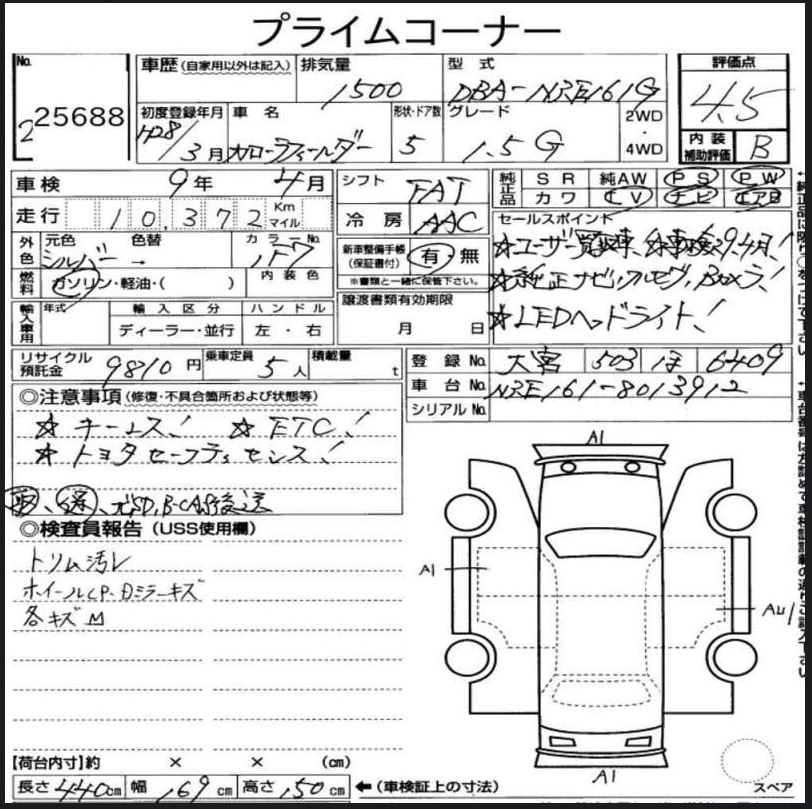 プライムコーナー
No. 2 25688
車歴 (自家用以外は記入) 排気量 1500 型式 DBA-NRE161G 評価点 4.5
初度登録年月 H28/3月 車名 カローラフィールダー 形状・ドア数 5 グレード 1.5G 2WD・4WD 内装補助評価 B
車検 9年 4月 シフト FAT 純正品 SR 純AW PS PW
カワ TV ナビ エアB
走行 10,372 Km マイル 冷房 AAC セールスポイント
外色 元色 シルバー 色替 → カラーNo. 1F7 新車整備手帳 (保証書付) 有・無 ☆ユーザー買取車、
※書類と一緒に保管下さい。
燃料 ガソリン・軽油・( ) 内装色 ☆純正ナビ・フルセグ、Bカメラ!
輸入車用 年式 輸入区分 ハンドル 譲渡書類有効期限 ☆LEDヘッドライト!
ディーラー・並行 左・右 月 日
リサイクル預託金 9810円 乗車定員 5人 積載量 t 登録No. 大宮 503 ほ 6409
車台No. NRE161-8013912
シリアルNo.
◎注意事項 (修復・不具合個所および状態等)
☆キーレス! ☆ETC!
☆トヨタセーフティセンス!
取、(

記)、ナビSD,B-CAS後送
◎検査員報告 (USS使用欄)
トリム汚レ
ホイールCP・Dミラーキズ
各キズM
A1
A1
AU1
A1
スペア
【荷台内寸】約 × × (cm)
長さ 440cm 幅 169cm 高さ 150cm ←(車検証上の寸法)